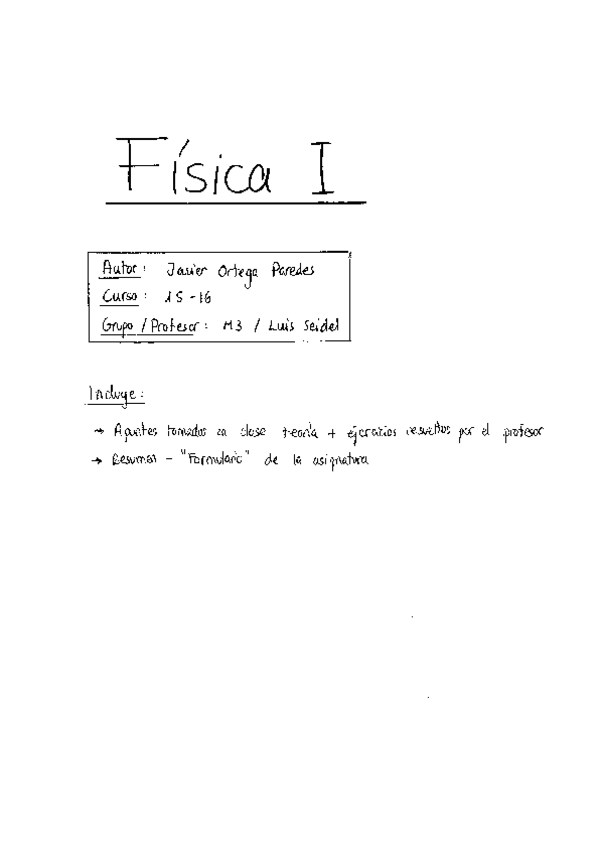 Física I
Autor: Javier Ortega Paredes
Curso: 15-16
Grupo / Profesor: M3 / Luis Seidel
Incluye:
→ Apuntes tomados en clase teoría + ejercicios resueltos por el profesor
→ Resumen - "Formulario" de la asignatura